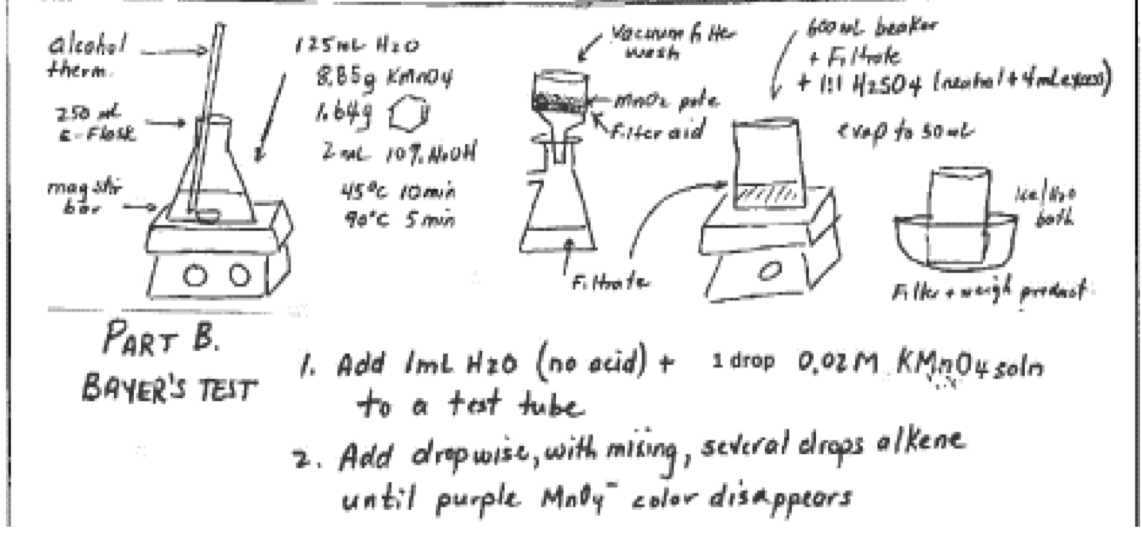 alcohol
therm.
250 mL
E-Flask
mag stir
bar
125 mL H2O
8.85g KMnO4
1.64g
2 mL 10% NaOH
45°C 10 min
90°C 5 min
Vacuum filter
wash
MnO2 pate
Filter aid
Filtrate
600 mL beaker
+ Filtrate
+ 1:1 H2SO4 (neutral + 4 mL excess)
evap to 50 mL
Ice/H2O
bath
Filter + weigh product.
PART B.
BAYER'S TEST
1. Add 1mL H2O (no acid) + 1 drop 0,02M KMnO4 soln
to a test tube
2. Add dropwise, with mixing, several drops alkene
until purple MnO4⁻ color disappears